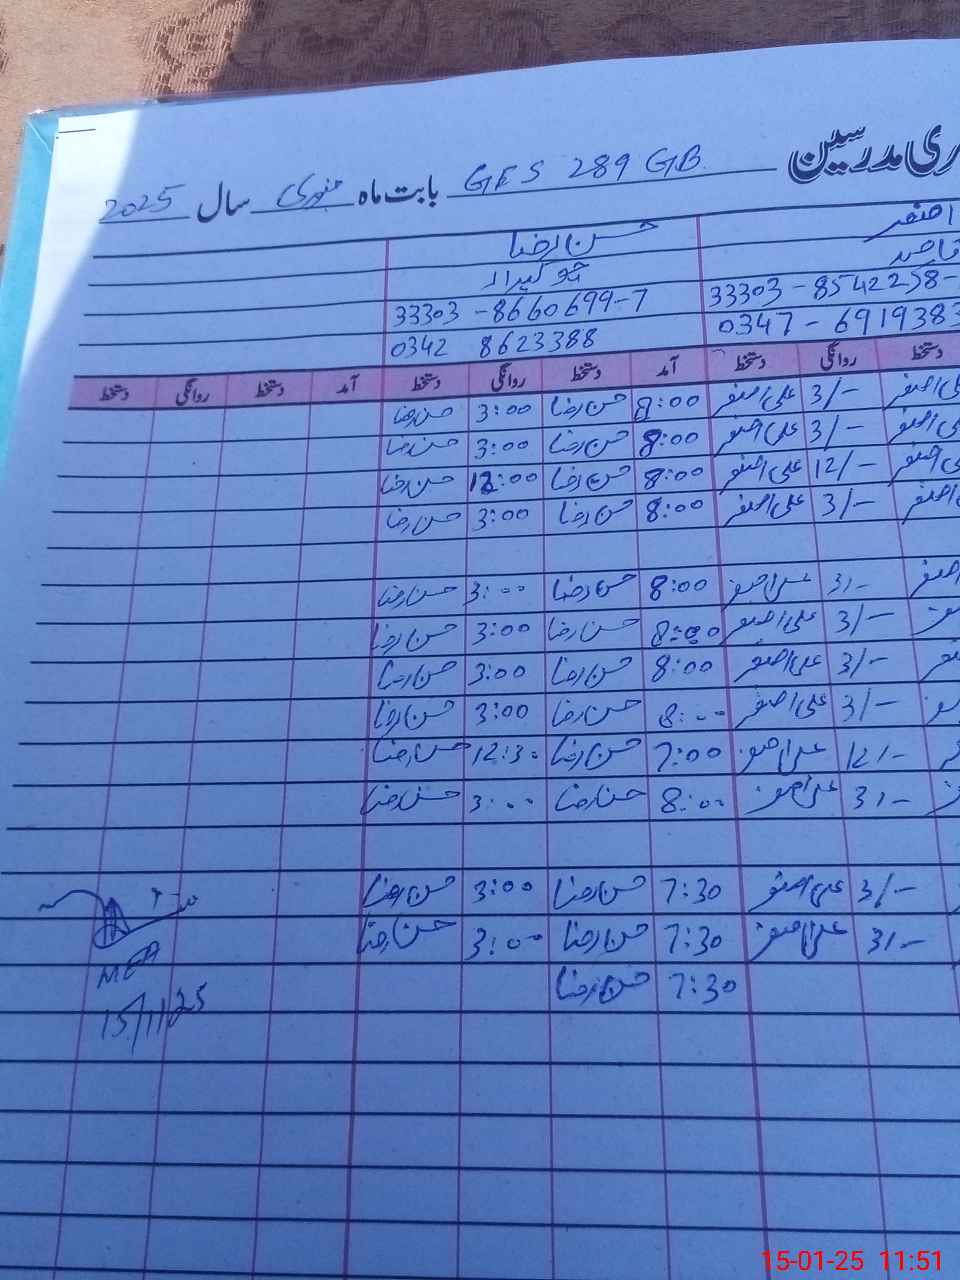 ری مدرسین GES 289 GB بابت ماہ جنوری سال 2025
اصغر حسن رضا
قاصد چوکیدار
33303 - 8542258- 33303 - 8660699-7
0347 - 6919383 0342 8623388
دستخط روانگی دستخط آمد دستخط روانگی دستخط آمد دستخط روانگی دستخط
علی اصغر 3/- علی اصغر 8:00 حسن رضا 3:00 حسن رضا
علی اصغر 3/- علی اصغر 8:00 حسن رضا 3:00 حسن رضا
علی اصغر 12/- علی اصغر 8:00 حسن رضا 12:00 حسن رضا
علی اصغر 3/- علی اصغر 8:00 حسن رضا 3:00 حسن رضا
اصغر 3/- علی اصغر 8:00 حسن رضا 3:00 حسن رضا
3/- علی اصغر 8:00 حسن رضا 3:00 حسن رضا
3/- علی اصغر 8:00 حسن رضا 3:00 حسن رضا
3/- علی اصغر 8:00 حسن رضا 3:00 حسن رضا
12/- علی اصغر 7:00 حسن رضا 12:30 حسن رضا
3/- علی اصغر 8:00 حسن رضا 3:00 حسن رضا
3/- علی اصغر 7:30 حسن رضا 3:00 حسن رضا
3/- علی اصغر 7:30 حسن رضا 3:00 حسن رضا
7:30 حسن رضا
MEA
15/1/25
15-01-25 11:51